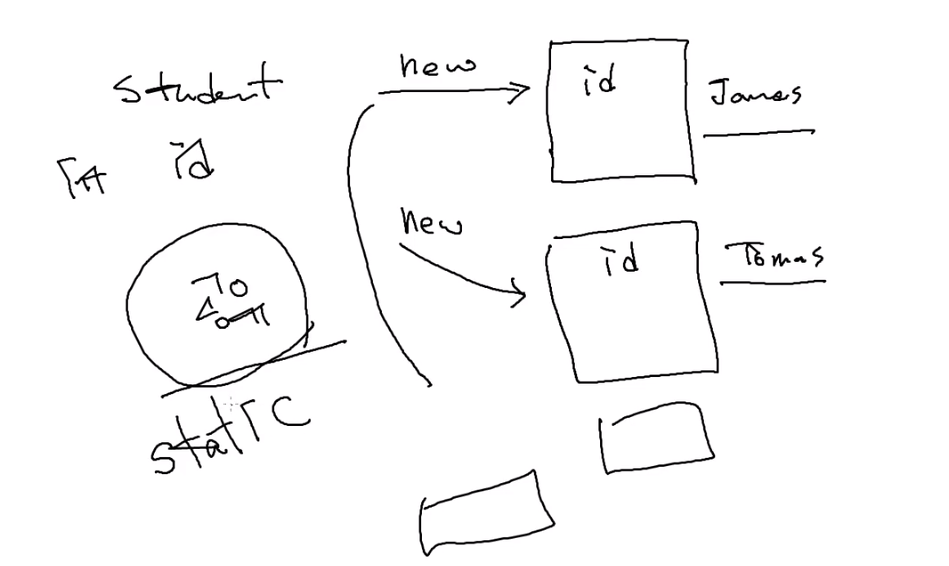 student
int id
static
new
id
James
new
id
Tomas